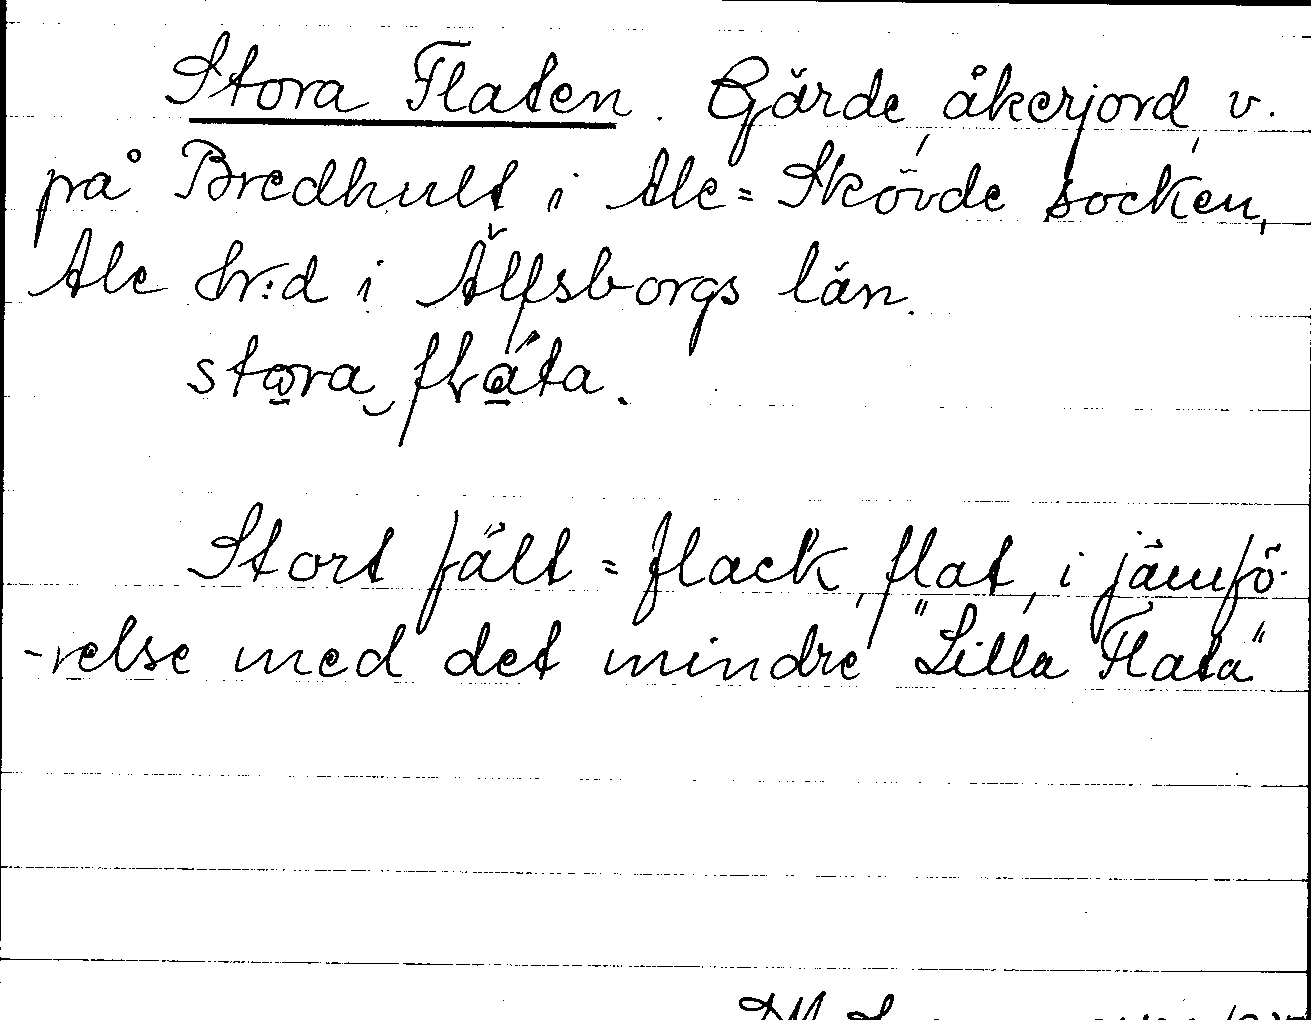 Stora Flaten. Gärde, åkerjord, v.
på Bredhult i Ale=Skövde socken,
Ale hr:d i Älfsborgs län.
stora flata.
Stort fält = flack, flat, i jämfö-
-relse med det mindre "Lilla Flata"